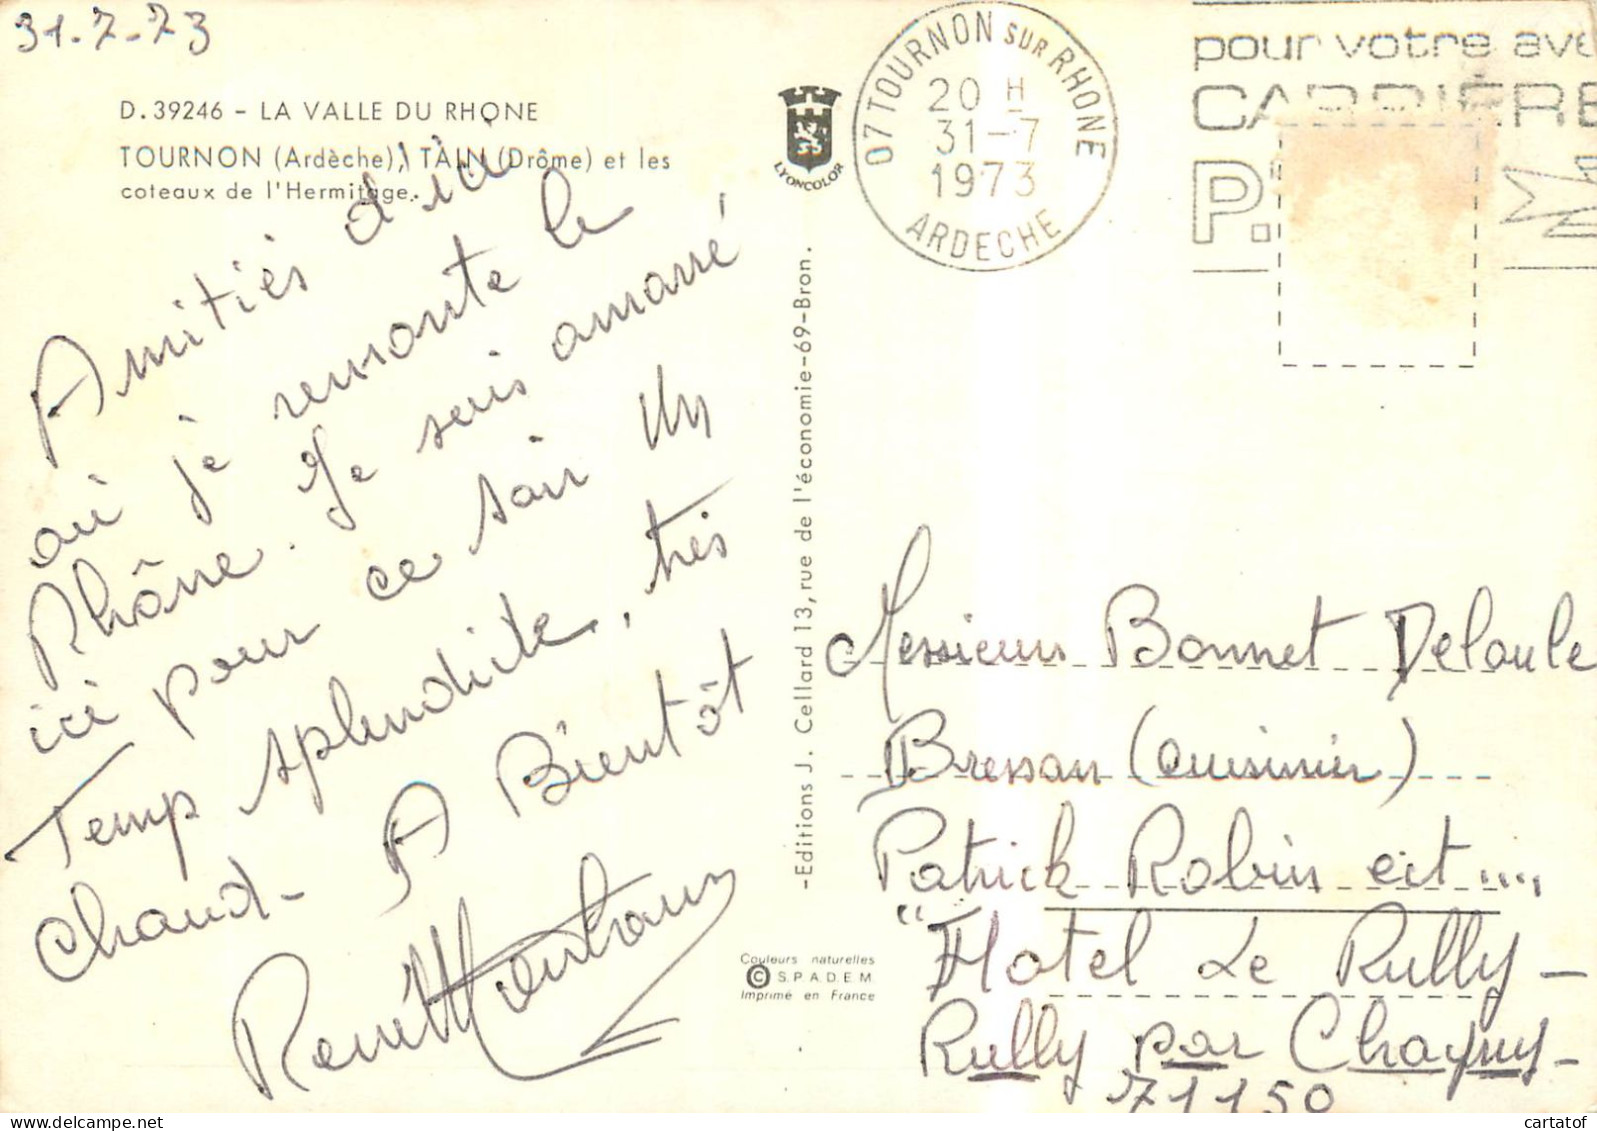 31-7-73
D.39246 - LA VALLE DU RHONE
TOURNON (Ardèche), TAIN (Drôme) et les
coteaux de l'Hermitage.
Amitiés d'ici
où je remonte le
Rhône. Je suis amarré
ici pour ce soir
Temp splendide, très
Chaud - A Bientôt
René
LYONCOLOR
-Editions J. Cellard 13, rue de l'économie-69-Bron.
Couleurs naturelles
© S.P.A.D.E.M.
Imprimé en France
07 TOURNON SUR RHONE
20 H
31-7
1973
ARDECHE
pour votre ave
CARRIERE
P.
Messieurs Bonnet Delaule
Bressan (Cuisinier)
Patrick Robin
"Hotel Le Rully -
Rully par Chagny -
71150
cartatof